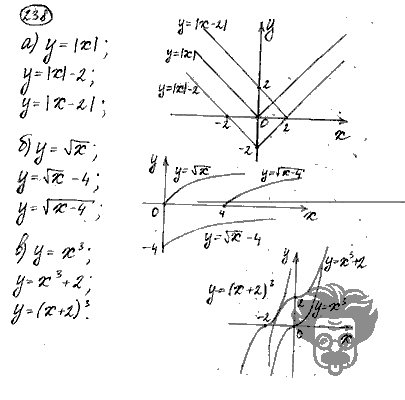 238
а) y = |x|;
y = |x| - 2;
y = |x - 2|;
б) y = √x;
y = √x - 4;
y = √(x-4);
в) y = x³;
y = x³ + 2;
y = (x+2)³.
y = |x-2|
y = |x|
y = |x| - 2
y
2
-2
0
2
x
-2
y
y = √x
y = √(x-4)
0
4
x
-4
y = √x - 4
y
y = x³+2
y = (x+2)³
2
y = x³
-2
0
x